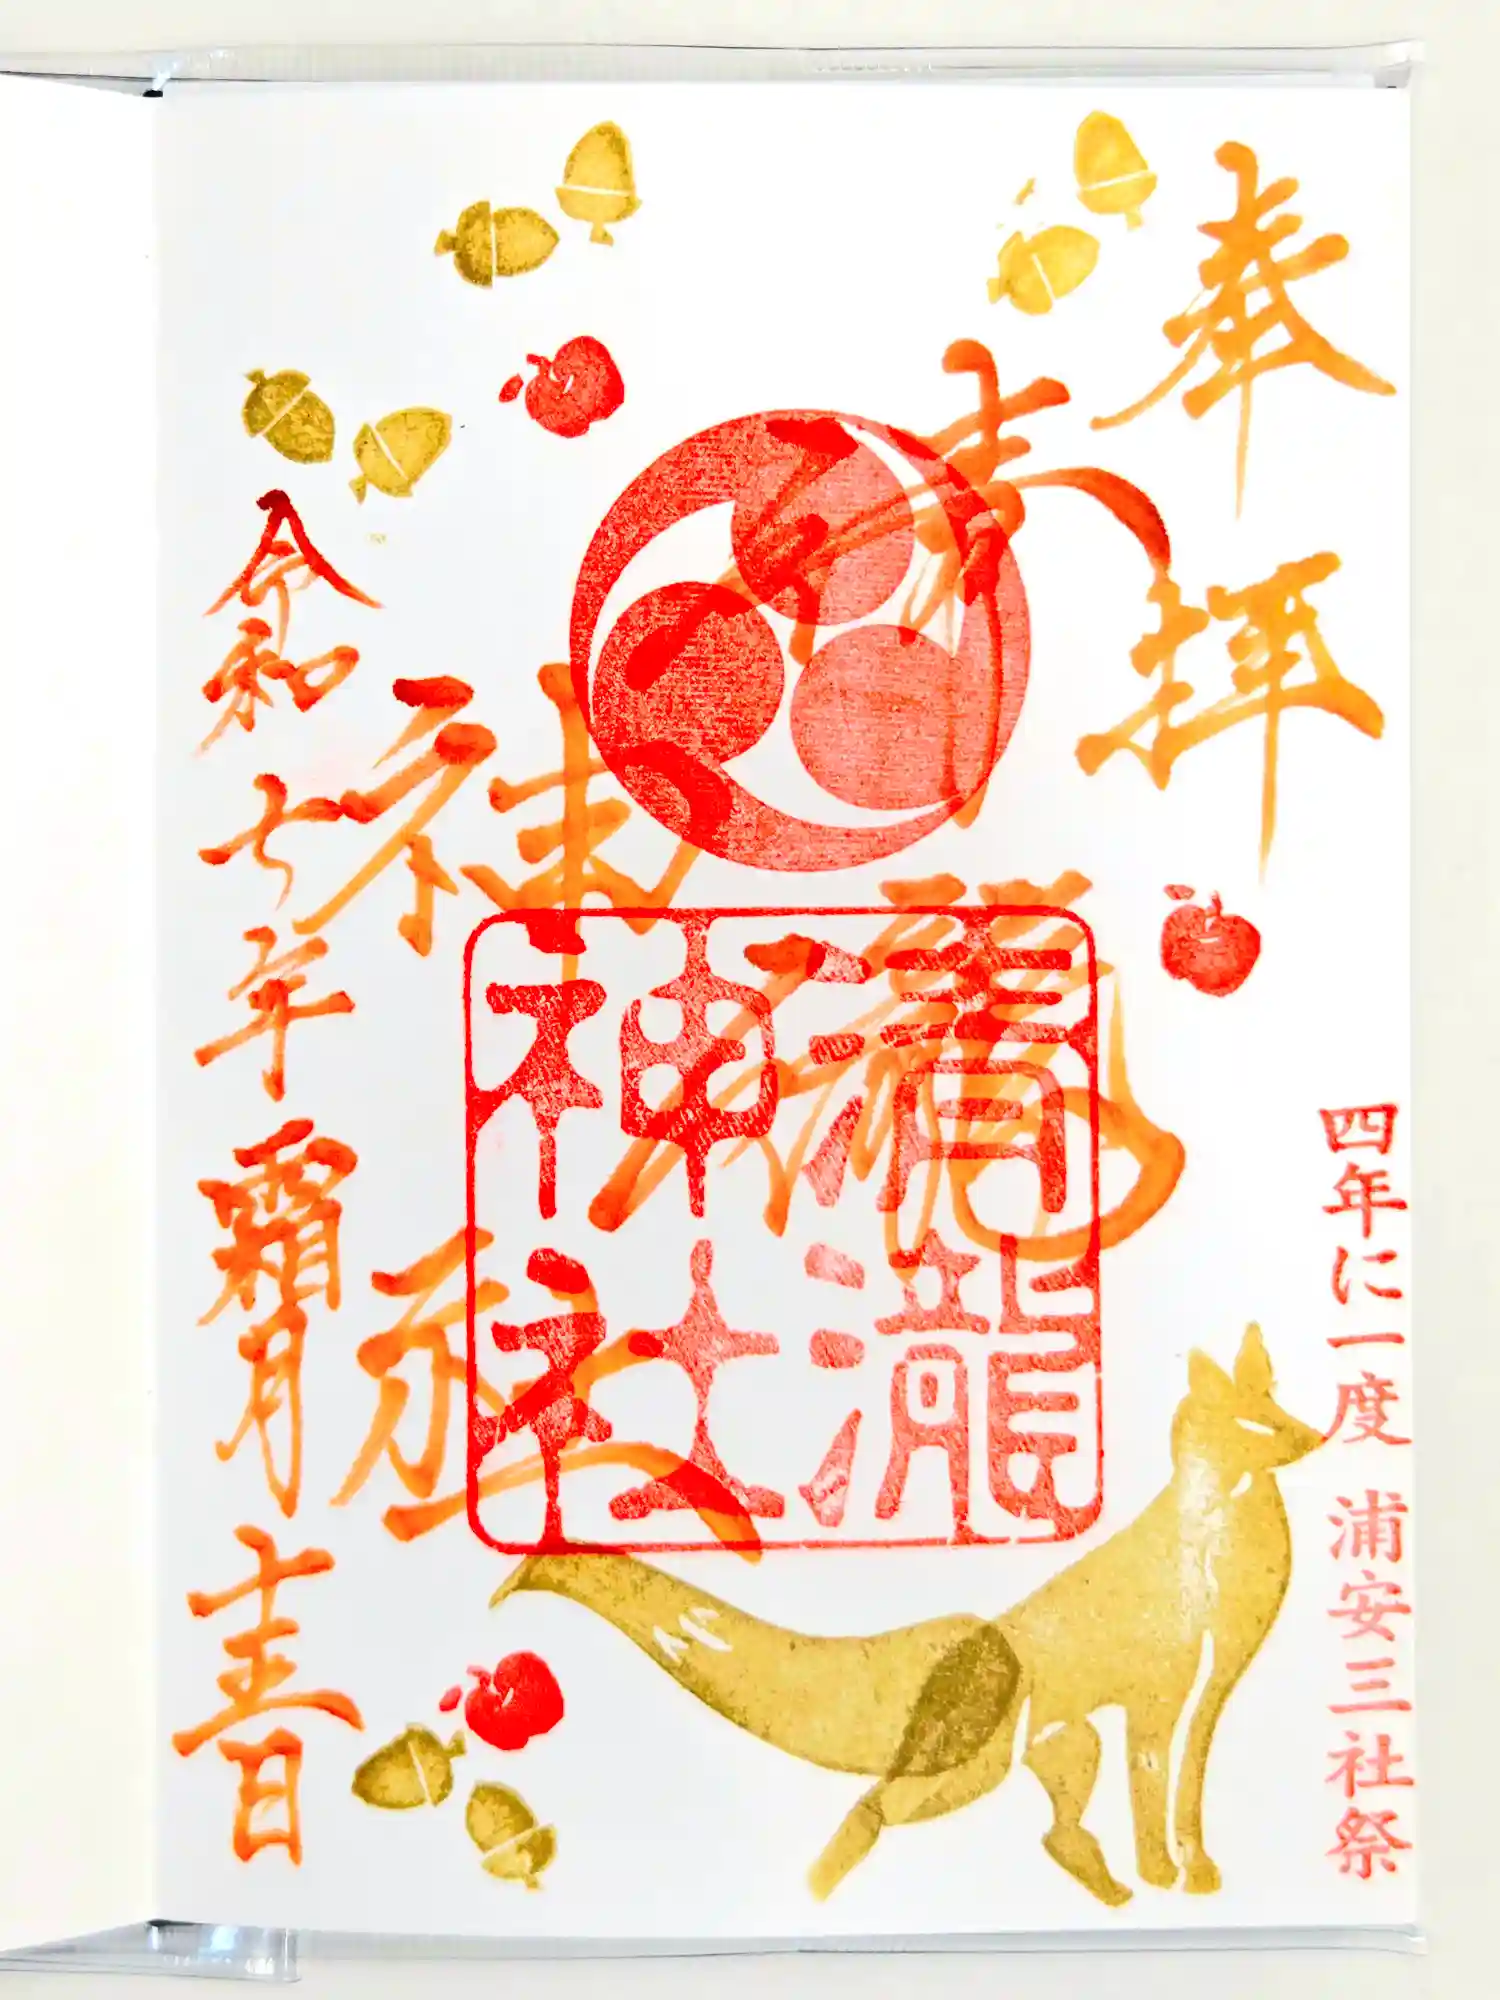 奉拝
四年に一度 浦安三社祭
清瀧
神社
清瀧
神社
令和七年霜月十五日